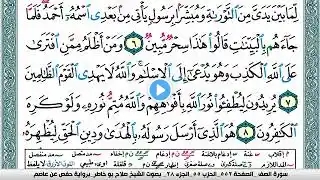 لِّمَا بَيْنَ يَدَىَّ مِنَ ٱلتَّوْرَىٰةِ وَمُبَشِّرًۢا بِرَسُولٍ يَأْتِى مِنۢ بَعْدِى ٱسْمُهُۥٓ أَحْمَدُ فَلَمَّا
جَآءَهُم بِٱلْبَيِّنَـٰتِ قَالُوا۟ هَـٰذَا سِحْرٌ مُّبِينٌ ٦ وَمَنْ أَظْلَمُ مِمَّنِ ٱفْتَرَىٰ
عَلَى ٱللَّهِ ٱلْكَذِبَ وَهُوَ يُدْعَىٰٓ إِلَى ٱلْإِسْلَـٰمِ وَٱللَّهُ لَا يَهْدِى ٱلْقَوْمَ ٱلظَّـٰلِمِينَ
٧ يُرِيدُونَ لِيُطْفِـُٔوا۟ نُورَ ٱللَّهِ بِأَفْوَٰهِهِمْ وَٱللَّهُ مُتِمُّ نُورِهِۦ وَلَوْ كَرِهَ
ٱلْكَـٰفِرُونَ ٨ هُوَ ٱلَّذِىٓ أَرْسَلَ رَسُولَهُۥ بِٱلْهُدَىٰ وَدِينِ ٱلْحَقِّ لِيُظْهِرَهُۥ
سورة الصف الصفحة ٥٥٢ الحزب ٥٥ الجزء ٢٨ بصوت الشيخ صلاح بو خاطر برواية حفص عن عاصم